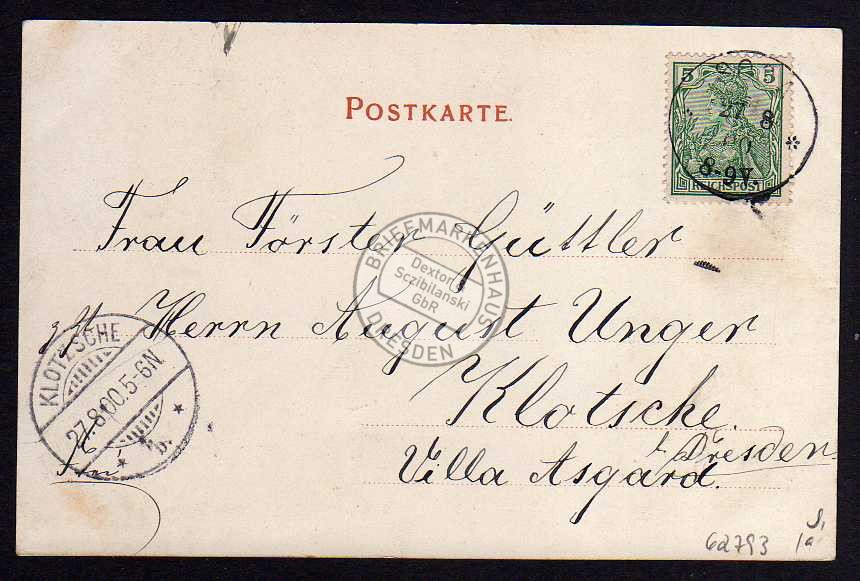 POSTKARTE.
5 5
27 8
8-9V.
REICHSPOST
Frau Förster Güttler
Herrn August Unger
Klotsche.
b. Dresden.
Villa Asgard.
KLOTZSCHE
27.8.00.5-6N.
* * b. *
BRIEFMARKENHAUS
Dextor &
Sczibilanski
GbR
DRESDEN
62793